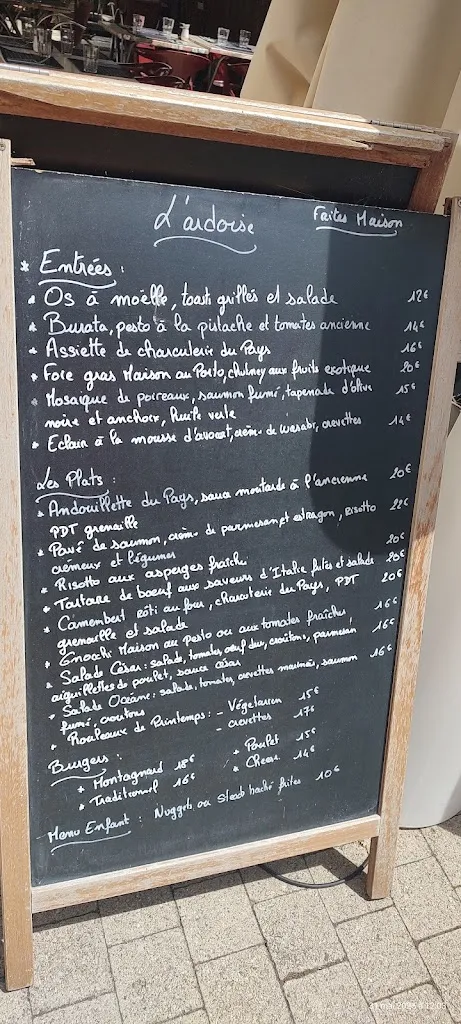 L'ardoise
Faites Maison
* Entrées :
* Os à moëlle, toast grillés et salade 12€
* Burata, pesto à la pistache et tomates ancienne 14€
* Assiette de charcuterie du Pays 16€
* Foie gras Maison au Porto, chutney aux fruits exotique 20€
* Mosaïque de poireaux, saumon fumé, tapenade d'olive 15€
noire et anchoix, huile verte
* Eclair à la mousse d'avocat, crème de wasabi, crevettes 14€
Les Plats :
* Andouillette du Pays, sauce moutarde à l'ancienne 20€
PDT grenaille
* Pavé de saumon, crème de parmesan et estragon, risotto 22€
crémeux et légumes
* Risotto aux asperges fraîches 20€
* Tartare de boeuf aux saveurs d'Italie frites et salade 20€
* Camembert Rôti au four, charcuterie du Pays, PDT 20€
grenaille et salade
* Gnocchi Maison au pesto ou aux tomates fraîches 16€
* Salade César : salade, tomates, oeuf dur, croûtons, parmesan 16€
aiguillettes de poulet, sauce césar
* Salade Océane : salade, tomates, crevettes marinées, saumon 16€
fumé, croutons
* Rouleaux de Printemps : - Végétarien 15€
- crevettes 17€
Burgers :
* Montagnard 18€
* Poulet 15€
* Traditionnel 16€
* Cheese 14€
Menu Enfant : Nuggets ou Steak haché frites 10€